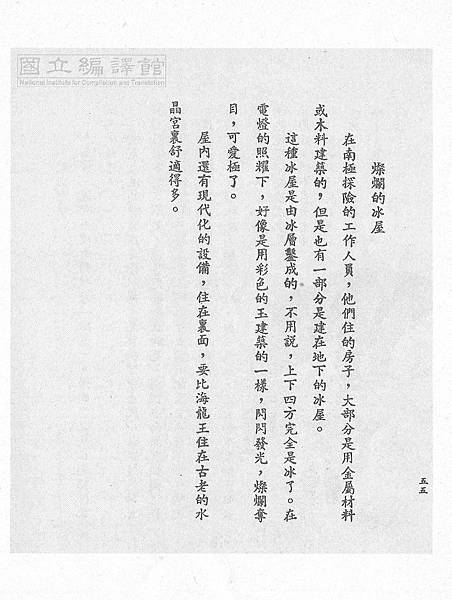 國立編譯館
National Institute for Compilation and Translation
燦爛的冰屋
在南極探險的工作人員，他們住的房子，大部分是用金屬材料
或木料建築的，但是也有一部分是建在地下的冰屋。
這種冰屋是由冰層鑿成的，不用說，上下四方完全是冰了。在
電燈的照耀下，好像是用彩色的玉建築的一樣，閃閃發光，燦爛奪
目，可愛極了。
屋內還有現代化的設備，住在裏面，要比海龍王住在古老的水
晶宮裏舒適得多。
五五